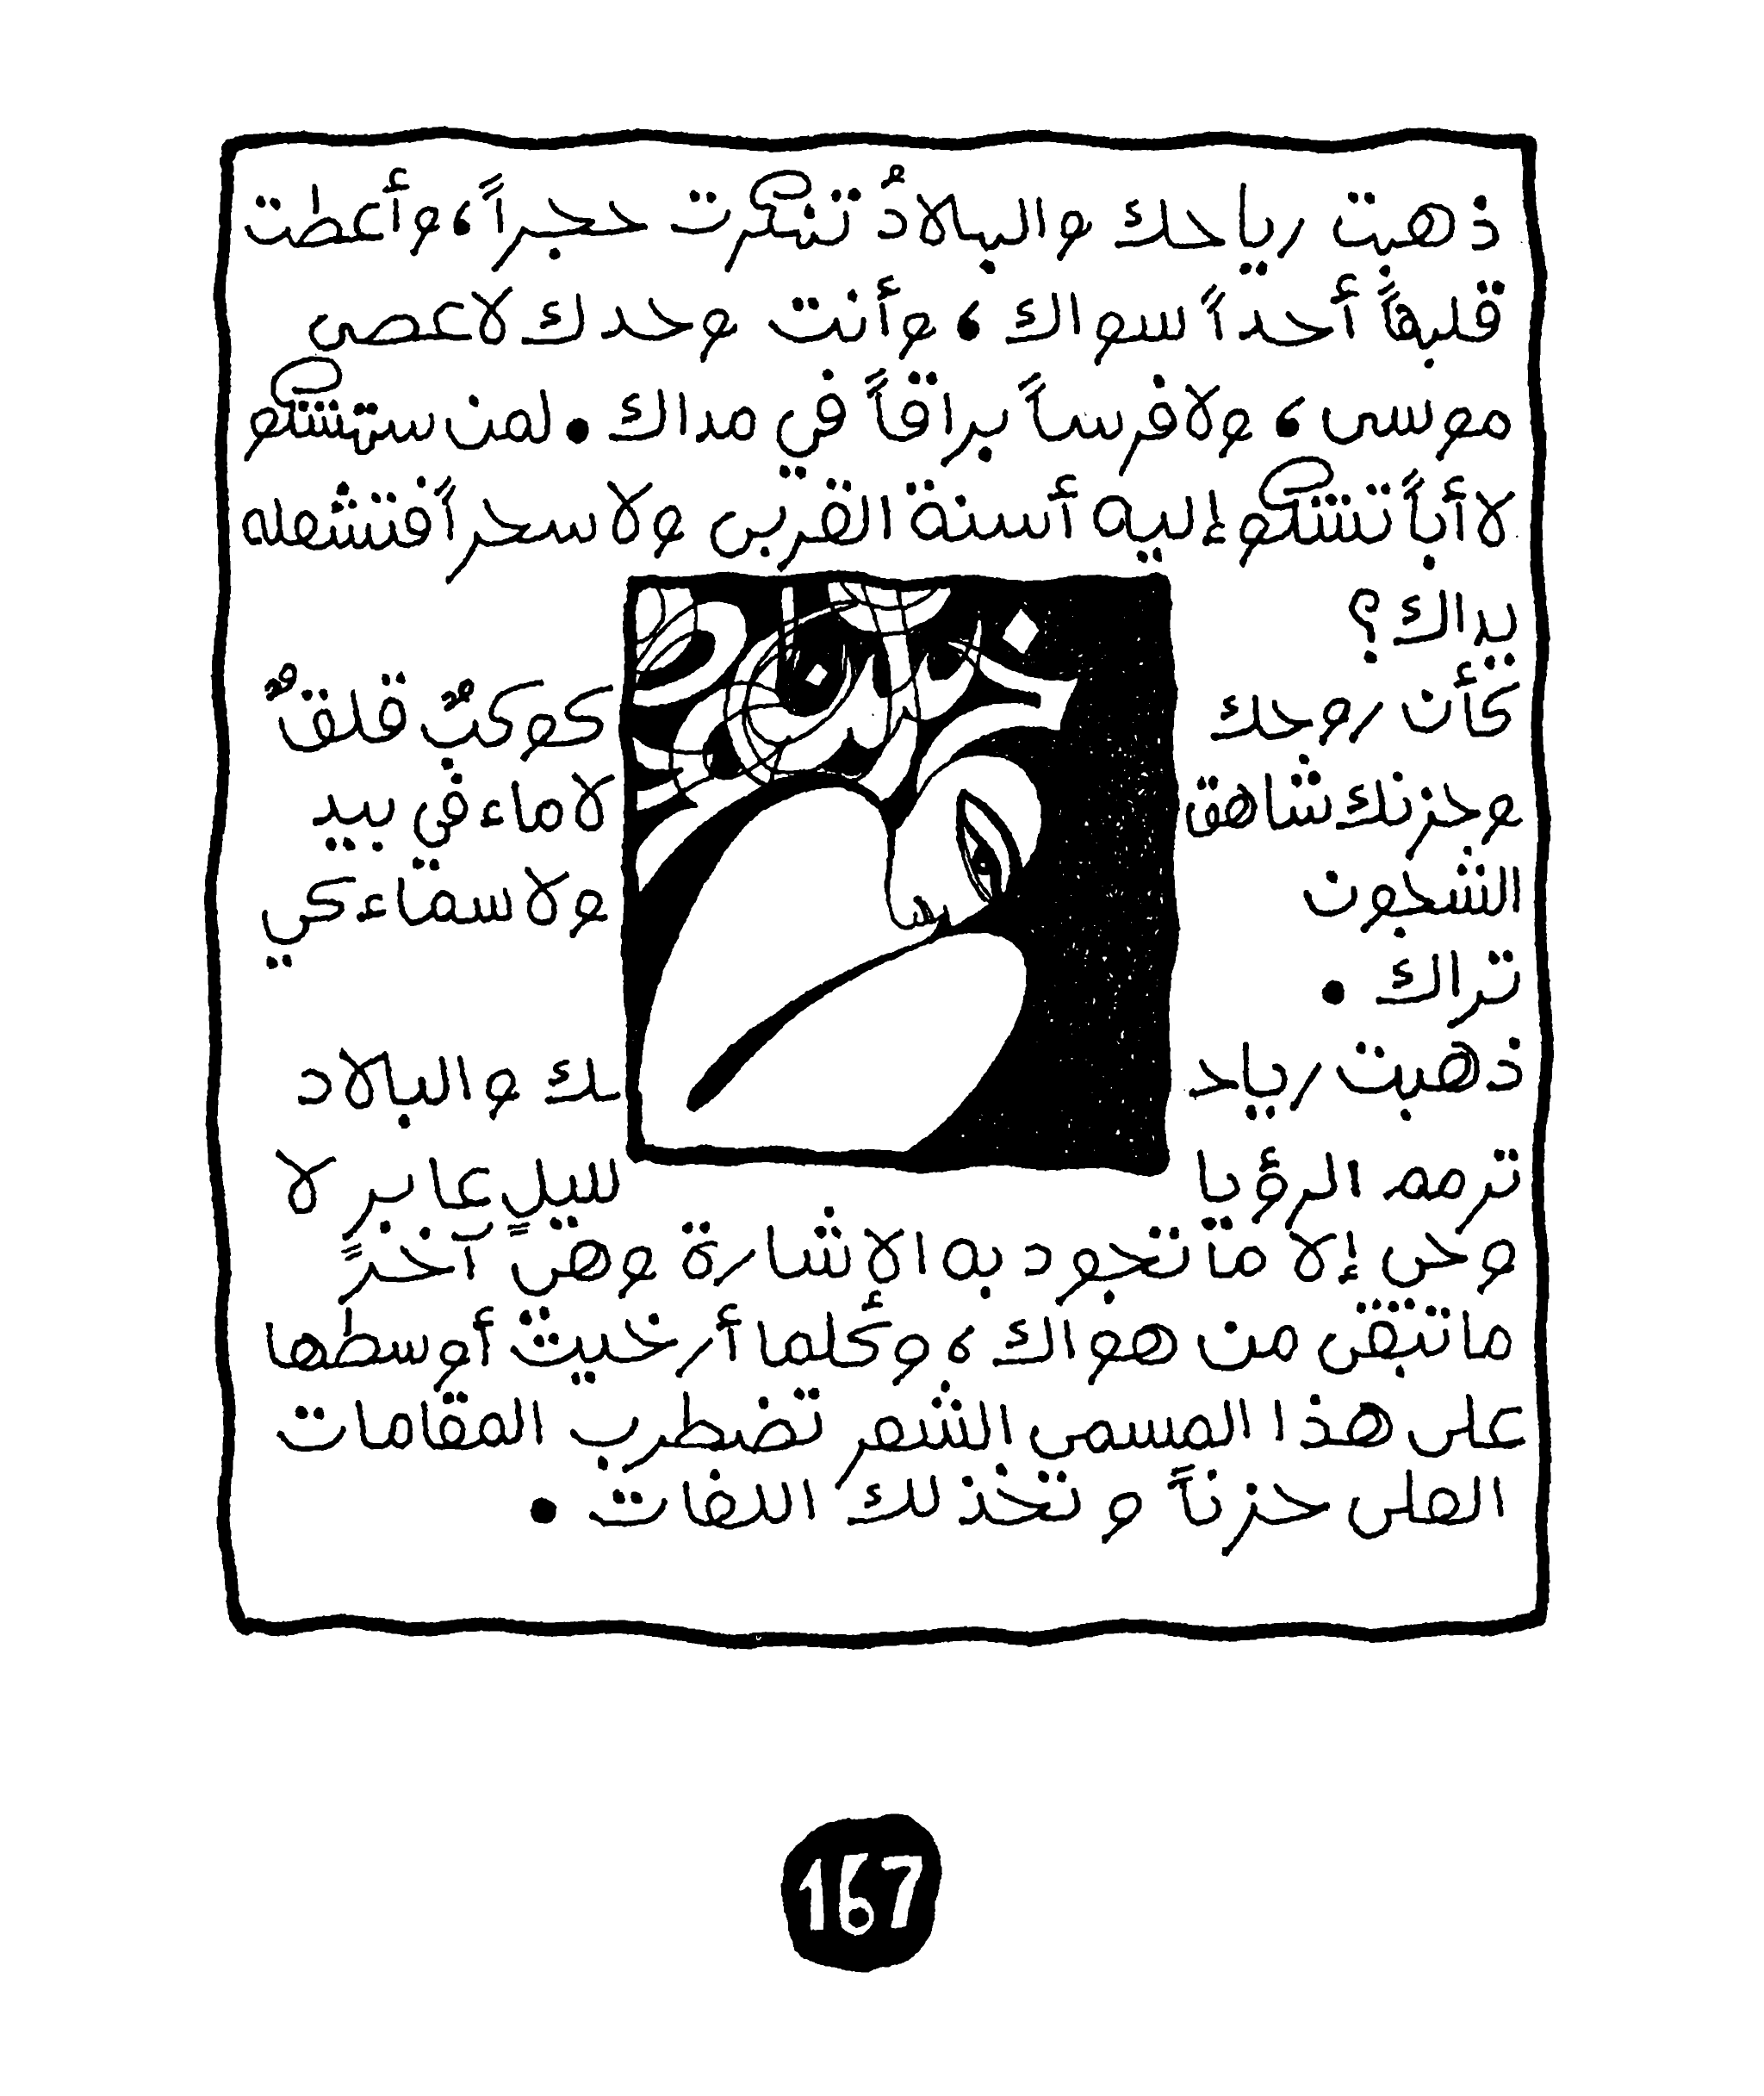 ذهبت رياحك والبلادُ تنكرت حجراً، وأعطت
قلبهاً أحداً سواك، وأنت وحدك لا عصى
موسى، ولا فرساً براقاً في مداك. لمن ستشكو
لا أباً تشكو إليه أسنة القربى ولا سحراً فتشعله
يداك؟
كأن روحك كوكبٌ قلقٌ
وحزنك شاهق لا ماء في بيد
الشجون ولا سماء كي
تراك.
ذهبت رياحك والبلاد
ترمم الرؤيا لليلٍ عابر لا
وحي إلا ما تجود به الإشارة وهي آخرً
ما تبقى من هواك، وكلما أرخيت أوسطها
على هذا المسمى الشعر تضطرب المقامات
العلى حزناً وتخذلك اللغات.
167